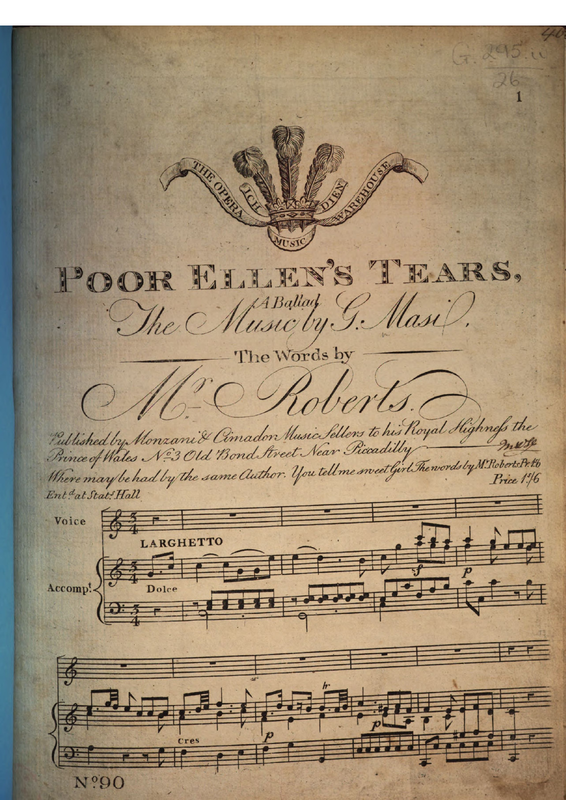 40
G. 295.u
26
1
THE OPERA
ICH DIEN
WAREHOUSE
MUSIC
POOR ELLEN'S TEARS,
A Ballad
The Music by G: Masi.
The Words by
Mr. Roberts.
Published by Monzani & Cimador Music Sellers to his Royal Highness the
Prince of Wales No. 3 Old Bond Street Near Piccadilly
Where may be had by the same Author. You tell me sweet Girl The words by Mr. Roberts Pr.
Price 1s/6
Ent.d at Stat.s Hall
Voice
LARGHETTO
Accomp.t
Dolce
f
p
tr
Cres
p
p
No. 90